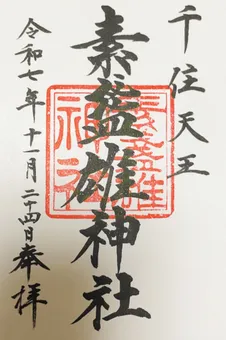 千住天王
素盞雄神社
令和七年十一月二十四日奉拝